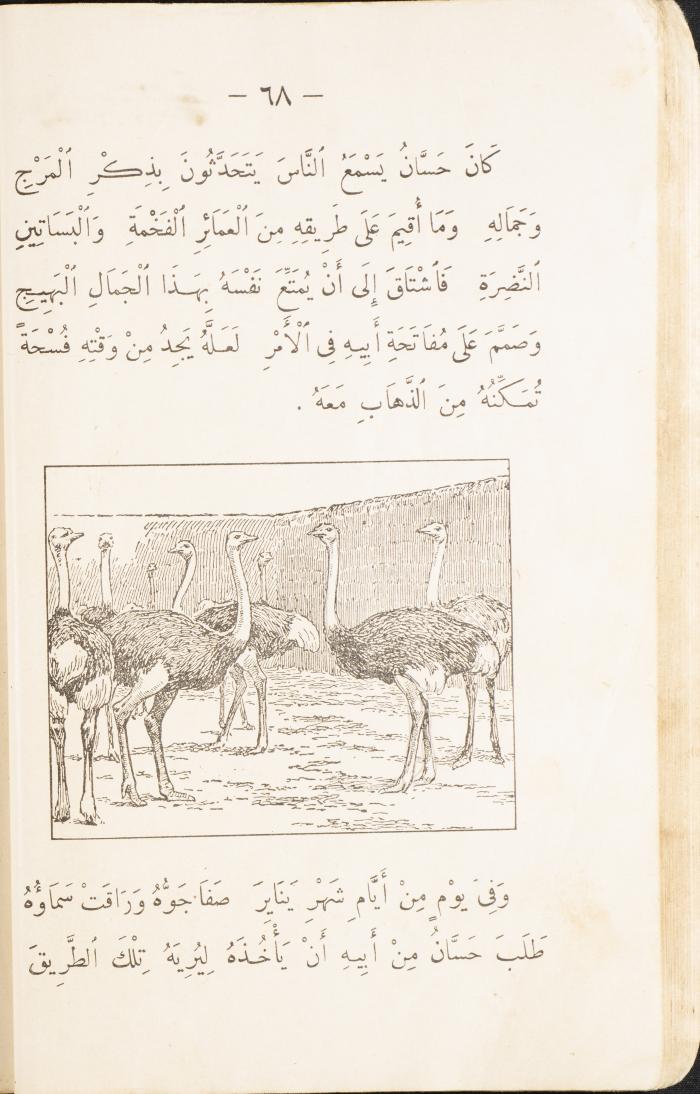 — ٦٨ —
كَانَ حَسَّانُ يَسْمَعُ ٱلنَّاسَ يَتَحَدَّثُونَ بِذِكْرِ ٱلْمَرْجِ
وَجَمَالِهِ وَمَا أُقِيمَ عَلَى طَرِيقِهِ مِنَ ٱلْعَمَائِرِ ٱلْفَخْمَةِ وَٱلْبَسَاتِينِ
ٱلنَّضِرَةِ فَٱشْتَاقَ إِلَى أَنْ يُمَتِّعَ نَفْسَهُ بِهَذَا ٱلْجَمَالِ ٱلْبَهِيجِ
وَصَمَّمَ عَلَى مُفَاتَحَةِ أَبِيهِ فِى ٱلْأَمْرِ لَعَلَّهُ يَجِدُ مِنْ وَقْتِهِ فُسْحَةً
تُمَكِّنُهُ مِنَ ٱلذَّهَابِ مَعَهُ .
وَفِى يَوْمٍ مِنْ أَيَّامِ شَهْرِ يَنَايِرَ صَفَا جَوُّهُ وَرَاقَتْ سَمَاؤُهُ
طَلَبَ حَسَّانُ مِنْ أَبِيهِ أَنْ يَأْخُذَهُ لِيُرِيَهُ تِلْكَ ٱلطَّرِيقَ